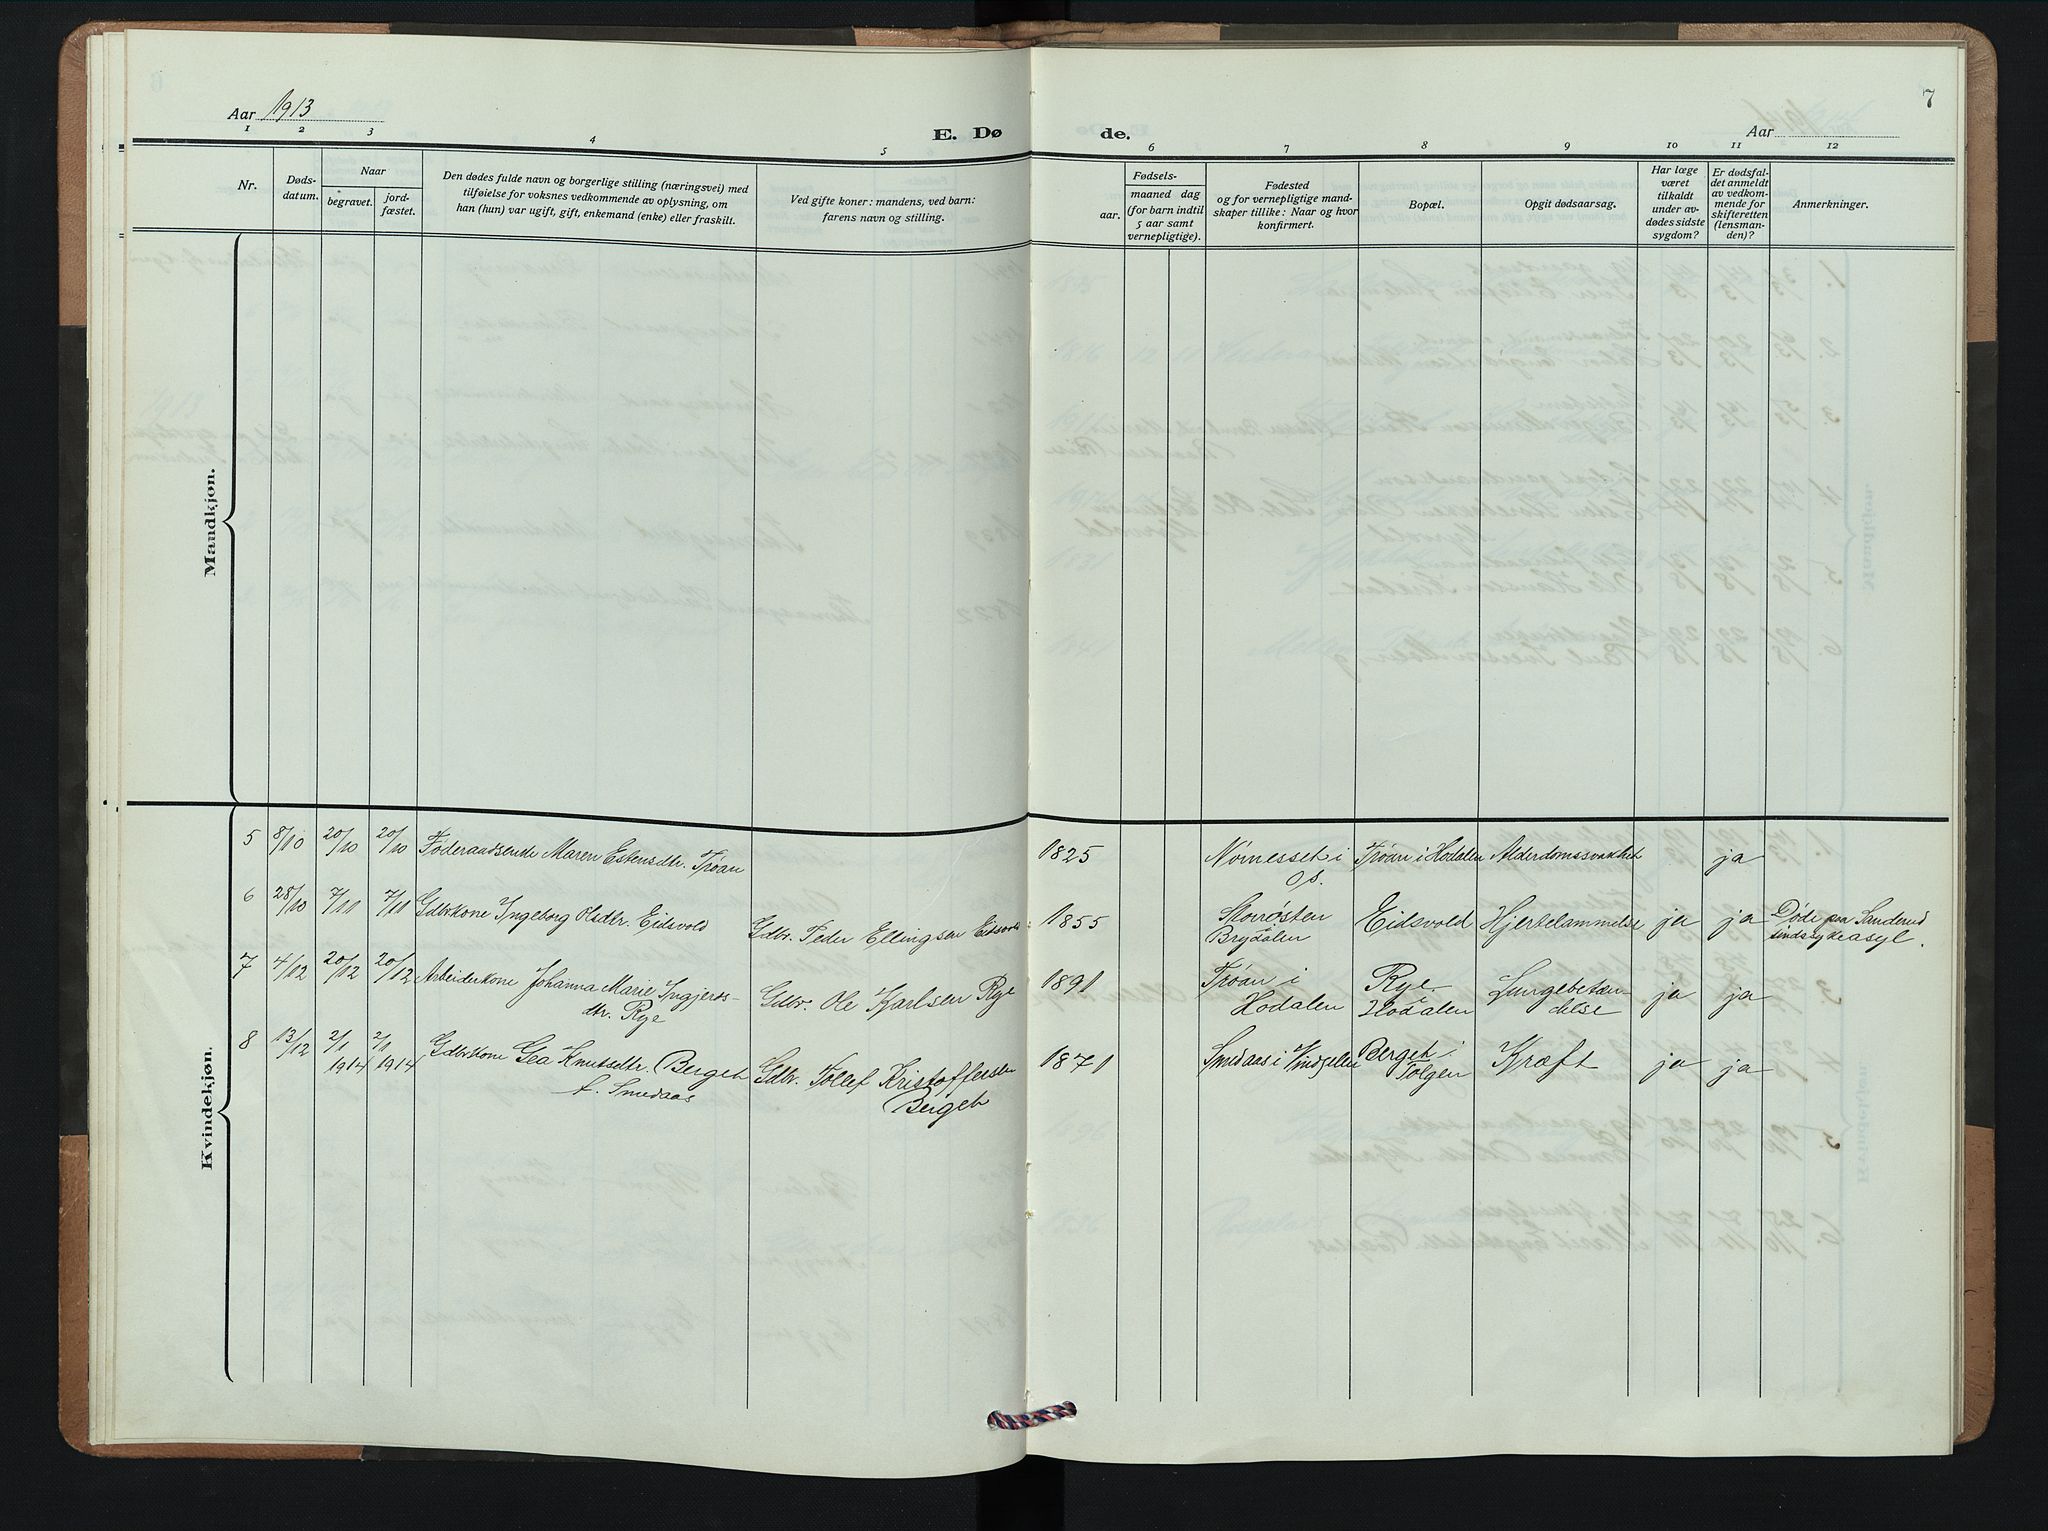 Aar 1913
E. Døde.
Aar
7
1 2 3 4 5 6 7 8 9 10 11 12
Nr.
Dødsdatum.
Naar
begravet.
jordfæstet.
Den dødes fulde navn og borgerlige stilling (næringsvei) med
tilføielse for voksnes vedkommende av oplysning, om
han (hun) var ugift, gift, enkemand (enke) eller fraskilt.
Ved gifte koner: mandens, ved barn:
farens navn og stilling.
Fødsels-
aar.
maaned dag
(for barn indtil
5 aar samt
vernepligtige).
Fødested
og for vernepligtige mand-
skaper tillike: Naar og hvor
konfirmert.
Bopæl.
Opgit dødsaarsag.
Har læge
været
tilkaldt
under av-
dødes sidste
sygdom?
Er dødsfal-
det anmeldt
av vedkom-
mende for
skifteretten
(lensman-
den)?
Anmerkninger.
Mandkjøn.
Kvindekjøn.
5 8/10 20/10 20/10 Føderaadsenke Maren Estensdtr. Trøan 1825 Nømesset i Os. Trøan i Hodalen Alderdomssvakhet ja
6 28/10 7/11 7/11 Gdbrkone Ingeborg Olsdtr. Eidsvold Gdbr. Peder Ellingsen Eidsvold 1855 Storøsten Brydalen Eidsvold Hjertelammelse ja ja Døde paa Sanderud sindssykeasyl.
7 4/12 20/12 20/12 Arbeiderkone Johanna Marie Ingjerds-
dtr. Rye Gdbr. Ole Karlsen Rye 1891 Trøan i Hodalen Rye Hodalen Lungebetændelse ja ja
8 13/12 2/1 1914 2/1 1914 Gdbrkone Gea Knutsdtr. Berget
f. Smedaas Gdbr. Tollef Kristoffersen
Berget 1871 Smedaas i Vindgelen Berget i Tolgen Kræft ja ja